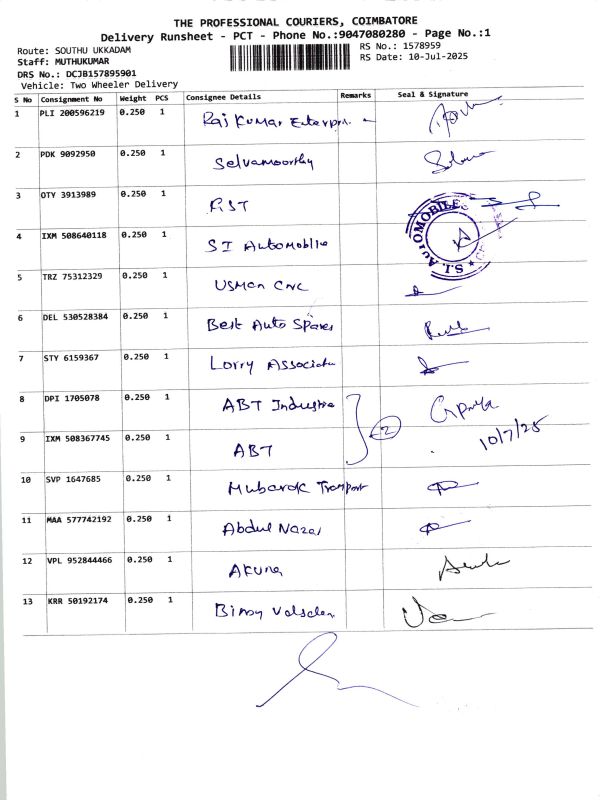 THE PROFESSIONAL COURIERS, COIMBATORE
Delivery Runsheet - PCT - Phone No.:9047080280 - Page No.:1
Route: SOUTHU UKKADAM
RS No.: 1578959
Staff: MUTHUKUMAR
RS Date: 10-Jul-2025
DRS No.: DCJB157895901
Vehicle: Two Wheeler Delivery
S No Consignment No Weight PCS Consignee Details Remarks Seal & Signature
1 PLI 200596219 0.250 1 Raj Kumar
2 PDK 9092950 0.250 1 Selvamoorthy
3 OTY 3913989 0.250 1 RST
4 IXM 508640118 0.250 1 SI Automoblie
S.I. AUTOMOBILES
5 TRZ 75312329 0.250 1 Usman CNC
6 DEL 530528384 0.250 1 Best Auto Spares
7 STY 6159367 0.250 1 Lorry Associate
8 DPI 1705078 0.250 1 ABT Industrie
2
10/7/25
9 IXM 508367745 0.250 1 ABT
10 SVP 1647685 0.250 1 Mubarak Transport
11 MAA 577742192 0.250 1 Abdul Nazar
12 VPL 952844466 0.250 1
13 KRR 50192174 0.250 1